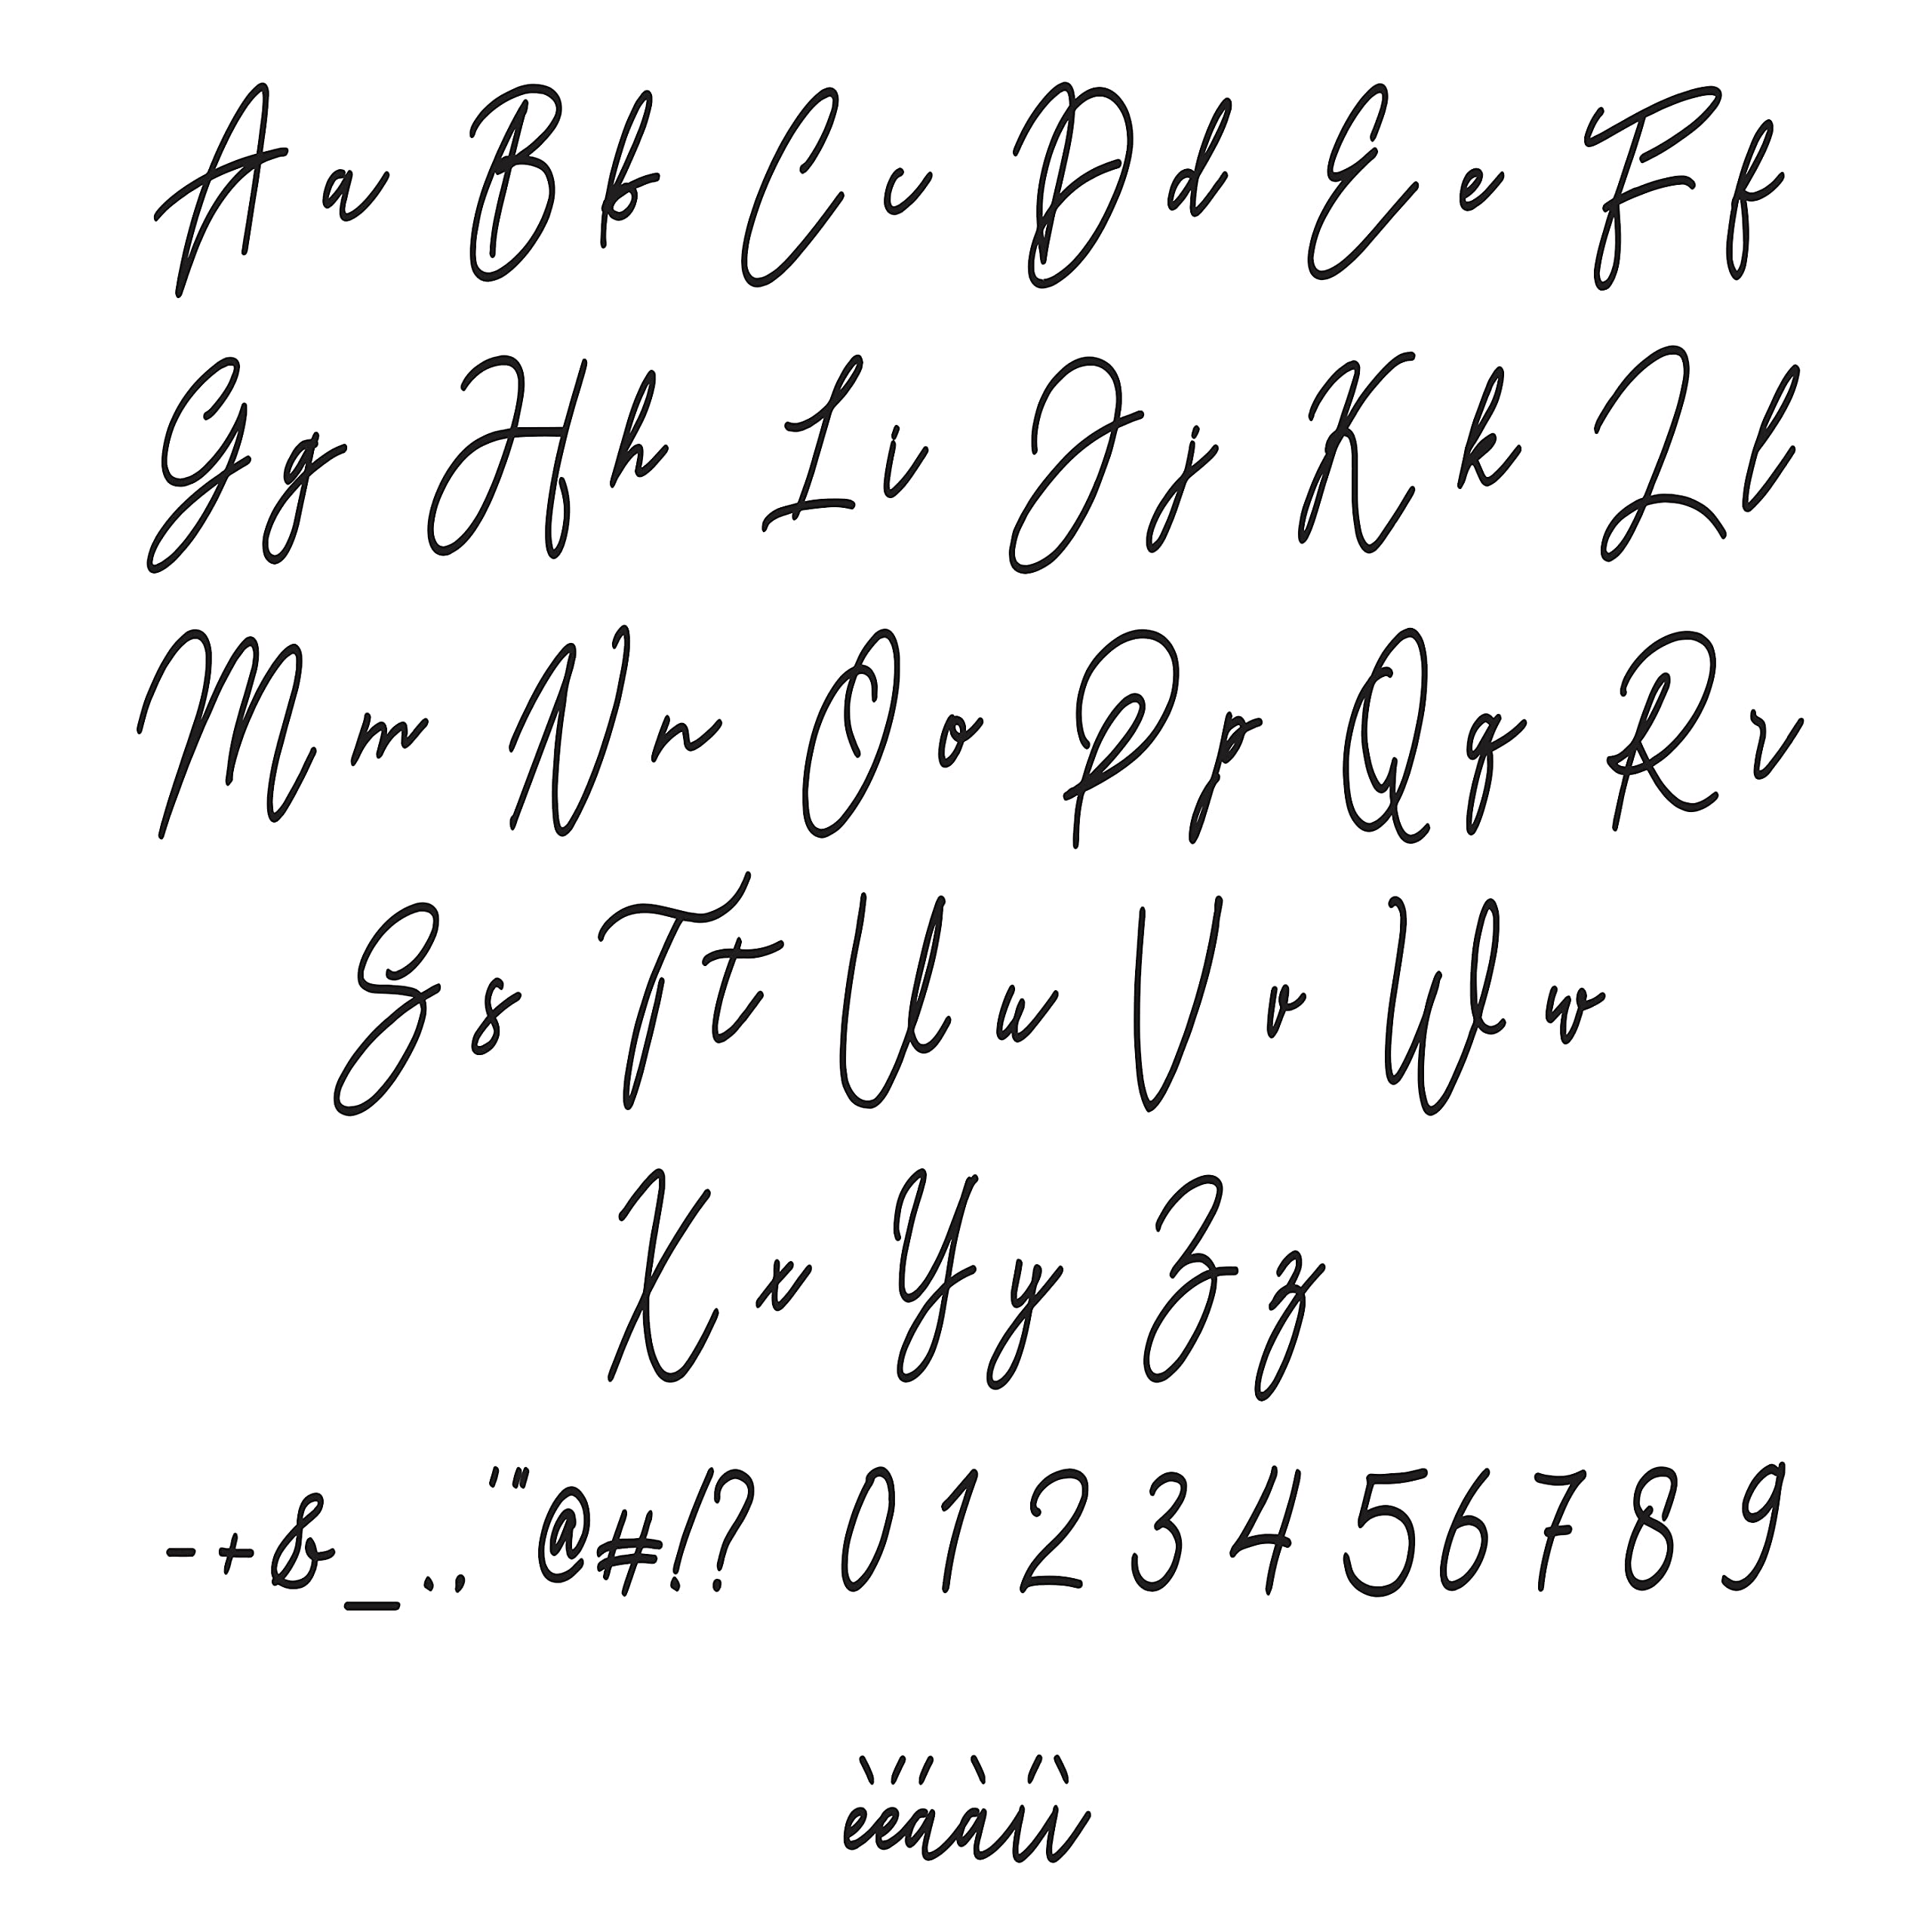 Aa Bb Cc Dd Ee Ff
Gg Hh Ii Jj Kk Ll
Mm Nn Oo Pp Qq Rr
Ss Tt Uu Vv Ww
Xx Yy Zz
-+&_.,'"@#!? 0 1 2 3 4 5 6 7 8 9
èéáàíì